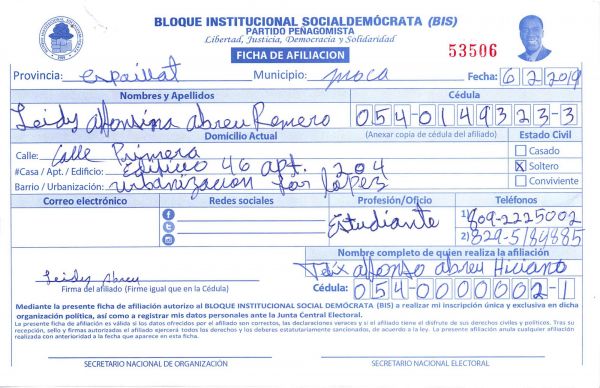 BLOQUE INSTITUCIONAL SOCIALDEMÓCRATA (BIS)
PARTIDO PEÑAGOMISTA
Libertad, Justicia, Democracia y Solidaridad
FICHA DE AFILIACION
53506
Provincia: Espaillat Municipio: moca Fecha: 6/2/2019
Nombres y Apellidos Cédula
Leidy Alfonsina Abreu Romero 054-0149323-3
Domicilio Actual (Anexar copia de cédula del afiliado) Estado Civil
Calle: Calle Primera
#Casa / Apt. / Edificio: Edificio 46 apt. 204
Barrio / Urbanización: urbanizacion Flor López
Casado
X Soltero
Conviviente
Correo electrónico Redes sociales Profesión/Oficio Teléfonos
Estudiante
1) 809-2225002
2) 829-5189885
Nombre completo de quien realiza la afiliación
Felix Alfonso Abreu Hiciano
Leidy Abreu
Firma del afiliado (Firme igual que en la Cédula) Cédula: 054-0000002-1
Mediante la presente ficha de afiliación autorizo al BLOQUE INSTITUCIONAL SOCIAL DEMÓCRATA (BIS) a realizar mi inscripción única y exclusiva en dicha
organización política, así como a registrar mis datos personales ante la Junta Central Electoral.
La presente ficha de afiliación es válida si los datos ofrecidos por el afiliado son correctos, las declaraciones veraces y si el afiliado tiene el disfrute de sus derechos civiles y políticos. Tras su
recepción, sello y firmas autorizadas el afiliado ejercerá todos los derechos y los deberes estatutariamente sancionados, de acuerdo a la ley. La presente afiliación anula cualquier afiliación
realizada con anterioridad a la fecha que aparece en esta ficha.
SECRETARIO NACIONAL DE ORGANIZACIÓN SECRETARIO NACIONAL ELECTORAL